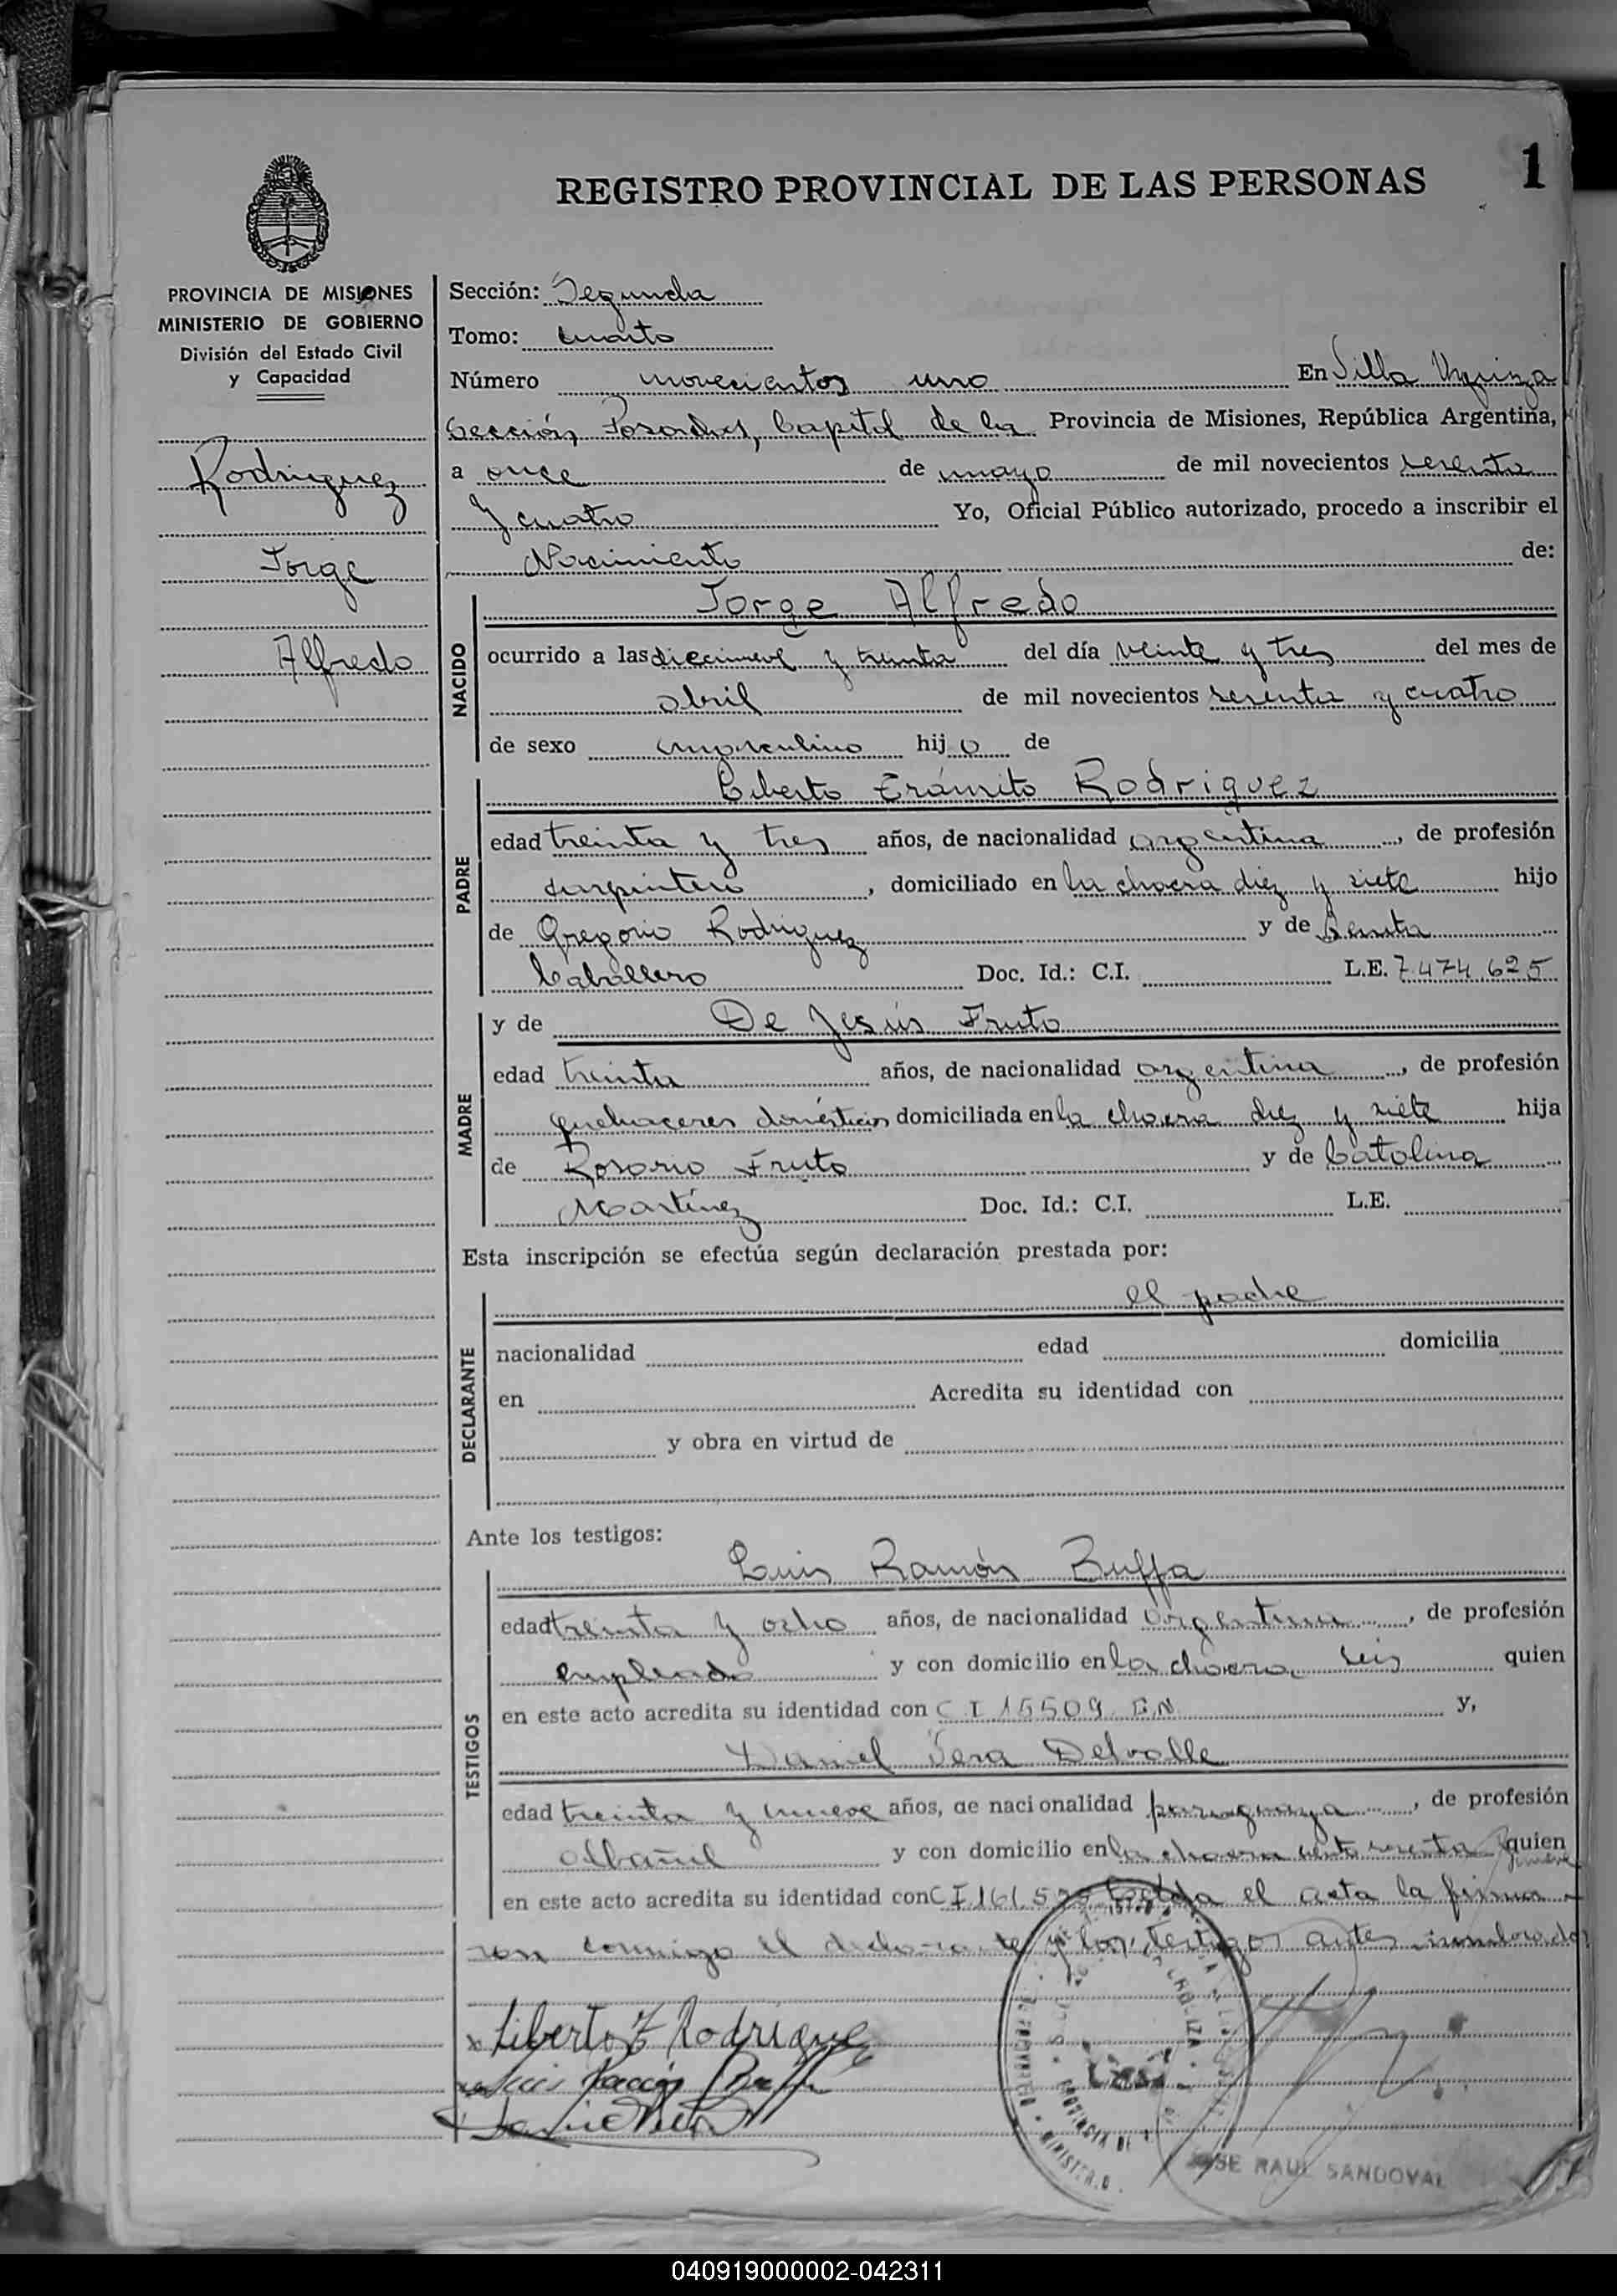 REGISTRO PROVINCIAL DE LAS PERSONAS
1
PROVINCIA DE MISIONES
MINISTERIO DE GOBIERNO
División del Estado Civil
y Capacidad
Rodriguez
Jorge
Alfredo
Sección: Segunda
Tomo: Cuarto
Número novecientos uno En Villa Urquiza
Sección, Posadas, Capital de la Provincia de Misiones, República Argentina,
a once de mayo de mil novecientos sesenta
y cuatro Yo, Oficial Público autorizado, procedo a inscribir el
Nacimiento de:
NACIDO
Jorge Alfredo
ocurrido a las diecinueve y treinta del día veinte y tres del mes de
abril de mil novecientos sesenta y cuatro
de sexo masculino hijo de
PADRE
Liberto Tránsito Rodriguez
edad treinta y tres años, de nacionalidad argentina, de profesión
carpintero, domiciliado en la chacra diez y siete hijo
de Gregorio Rodriguez y de Benita
Caballero Doc. Id.: C.I. L.E. 7.474.625
MADRE
y de De Jesús Fruto
edad treinta años, de nacionalidad argentina, de profesión
quehaceres domésticos domiciliada en la chacra diez y siete hija
de Rosario Fruto y de Catalina
Martínez Doc. Id.: C.I. L.E.
Esta inscripción se efectúa según declaración prestada por:
DECLARANTE
el padre
nacionalidad edad domicilia
en Acredita su identidad con
y obra en virtud de
Ante los testigos:
TESTIGOS
Luis Ramón Buffa
edad treinta y ocho años, de nacionalidad argentina, de profesión
empleado y con domicilio en la chacra seis quien
en este acto acredita su identidad con C I 15509 y,
Daniel Vera Delvalle
edad treinta y nueve años, de nacionalidad paraguaya, de profesión
albañil y con domicilio en la chacra ciento sesenta y nueve quien
en este acto acredita su identidad con C I 161.5 Leída el acta la firma
ron conmigo el declarante y los testigos antes nombrados
Liberto T Rodrigue
Luis Ramón Buffa
Daniel Vera
JOSE RAUL SANDOVAL
040919000002-042311